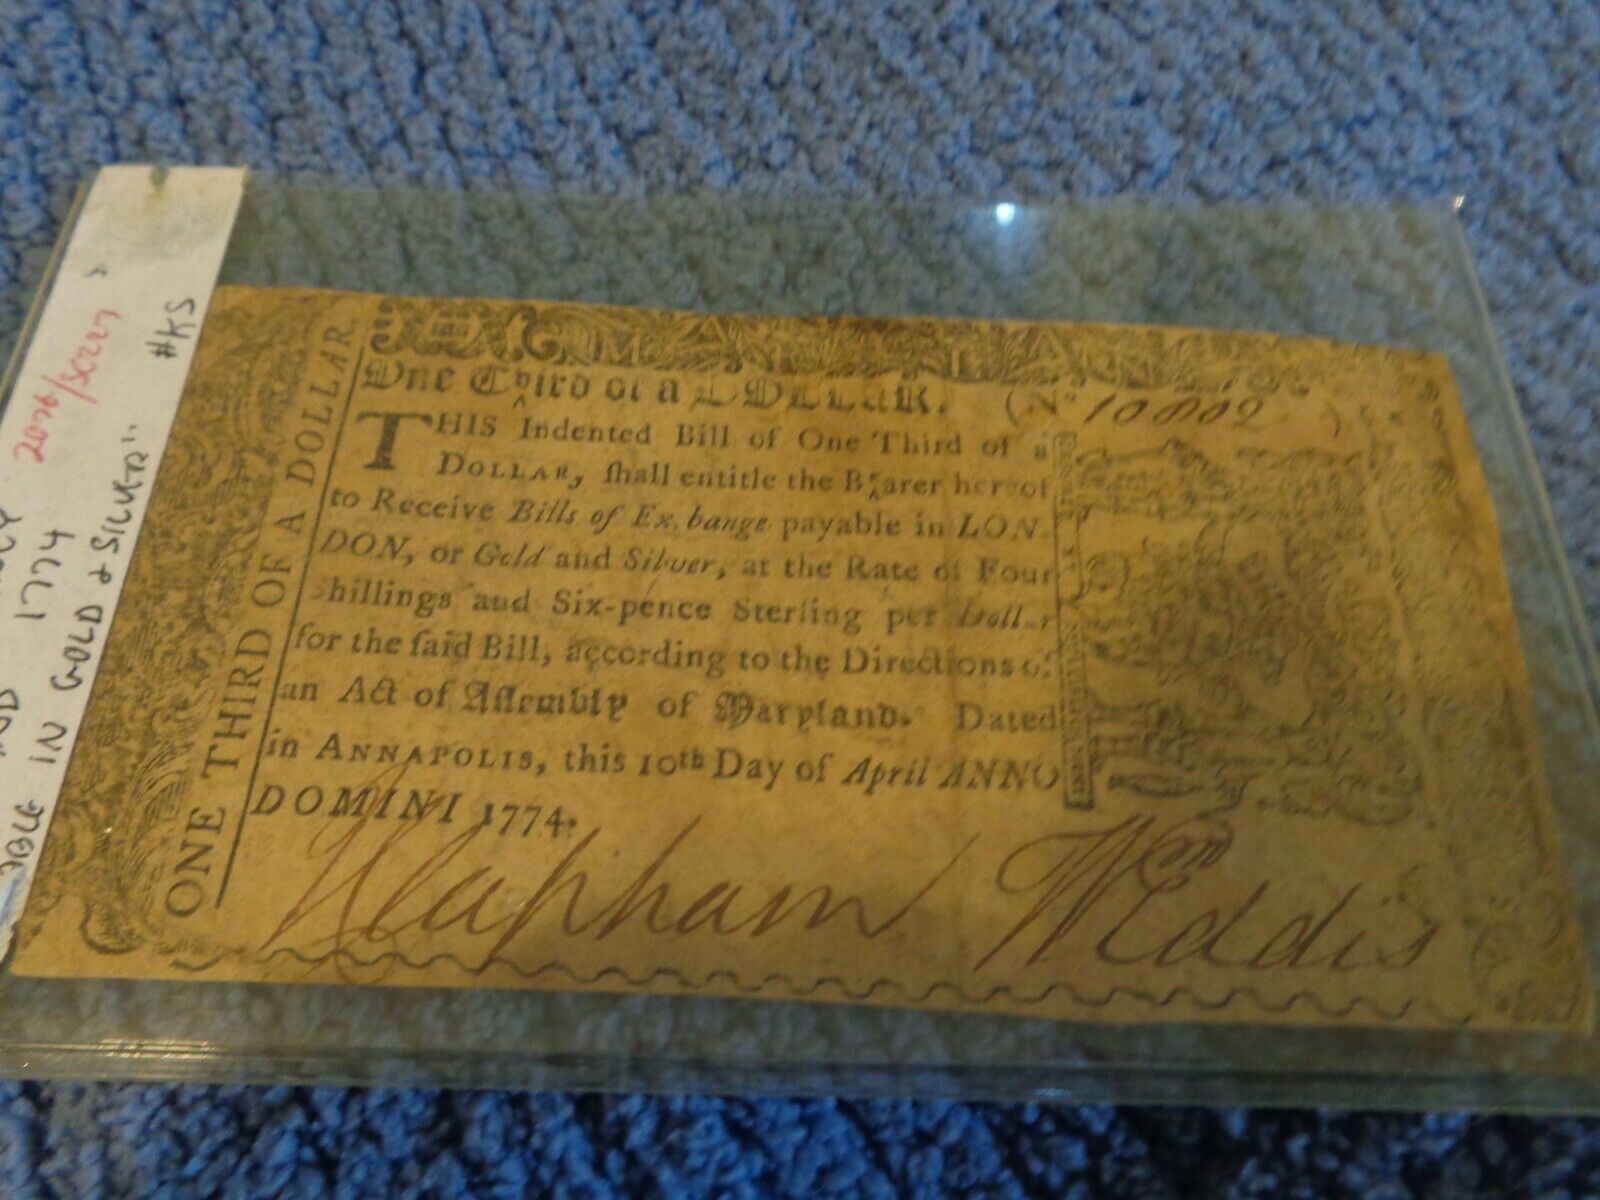 One Third of a DOLLAR. (No. 10802 )
THIS Indented Bill of One Third of a
DOLLAR, shall entitle the Bearer hereof
to Receive Bills of Ex.bange payable in LON-
DON, or Gold and Silver, at the Rate of Four
Shillings and Six-pence Sterling per Dollar
for the said Bill, according to the Directions of
an Act of Assembly of Maryland. Dated
in ANNAPOLIS, this 10th Day of April ANNO
DOMINI 1774.
Clapham Wm Eddis
ONE THIRD OF A DOLLAR.
#KS
1774
IN GOLD & SILVER".